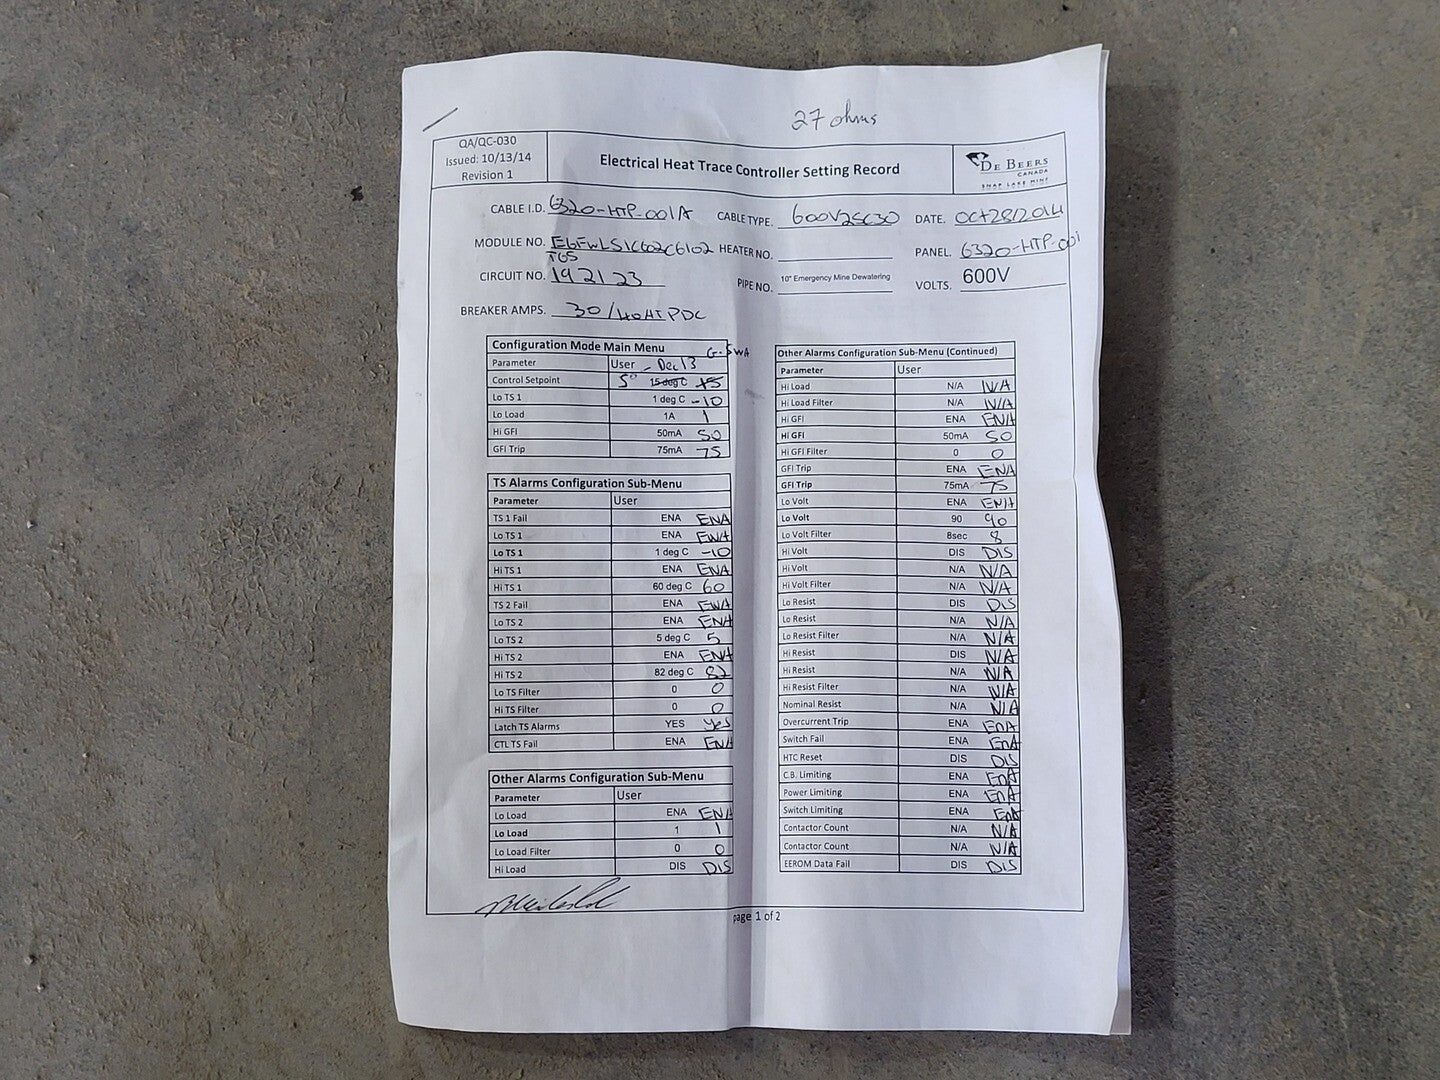 27 ohms
QA/QC-030
Issued: 10/13/14
Revision 1
Electrical Heat Trace Controller Setting Record
DE BEERS
CANADA
SNAP LAKE MINE
CABLE I.D. 6320-HTP-001A CABLE TYPE. 600V2SC30 DATE. Oct 28/2014
MODULE NO. HEATER NO. PANEL. 6320-HTP-001
CIRCUIT NO. 19,21,23 PIPE NO. 10" Emergency Mine Dewatering VOLTS. 600V
BREAKER AMPS. 30/40
Configuration Mode Main Menu
Parameter User - Dec 13
Control Setpoint 5° 15 deg C 15
Lo TS 1 1 deg C -10
Lo Load 1A 1
Hi GFI 50mA 50
GFI Trip 75mA 75
TS Alarms Configuration Sub-Menu
Parameter User
TS 1 Fail ENA ENA
Lo TS 1 ENA ENA
Lo TS 1 1 deg C -10
Hi TS 1 ENA ENA
Hi TS 1 60 deg C 60
TS 2 Fail ENA ENA
Lo TS 2 ENA ENA
Lo TS 2 5 deg C 5
Hi TS 2 ENA ENA
Hi TS 2 82 deg C 82
Lo TS Filter 0 0
Hi TS Filter 0 0
Latch TS Alarms YES Yes
CTL TS Fail ENA ENA
Other Alarms Configuration Sub-Menu
Parameter User
Lo Load ENA ENA
Lo Load 1 1
Lo Load Filter 0 0
Hi Load DIS DIS
Other Alarms Configuration Sub-Menu (Continued)
Parameter User
Hi Load N/A N/A
Hi Load Filter N/A N/A
Hi GFI ENA ENA
Hi GFI 50mA 50
Hi GFI Filter 0 0
GFI Trip ENA ENA
GFI Trip 75mA 75
Lo Volt ENA ENA
Lo Volt 90 90
Lo Volt Filter 8sec 8
Hi Volt DIS DIS
Hi Volt N/A N/A
Hi Volt Filter N/A N/A
Lo Resist DIS DIS
Lo Resist N/A N/A
Lo Resist Filter N/A N/A
Hi Resist DIS N/A
Hi Resist N/A N/A
Hi Resist Filter N/A N/A
Nominal Resist N/A N/A
Overcurrent Trip ENA ENA
Switch Fail ENA ENA
HTC Reset DIS DIS
C.B. Limiting ENA ENA
Power Limiting ENA ENA
Switch Limiting ENA ENA
Contactor Count N/A N/A
Contactor Count N/A N/A
EEROM Data Fail DIS DIS
page 1 of 2